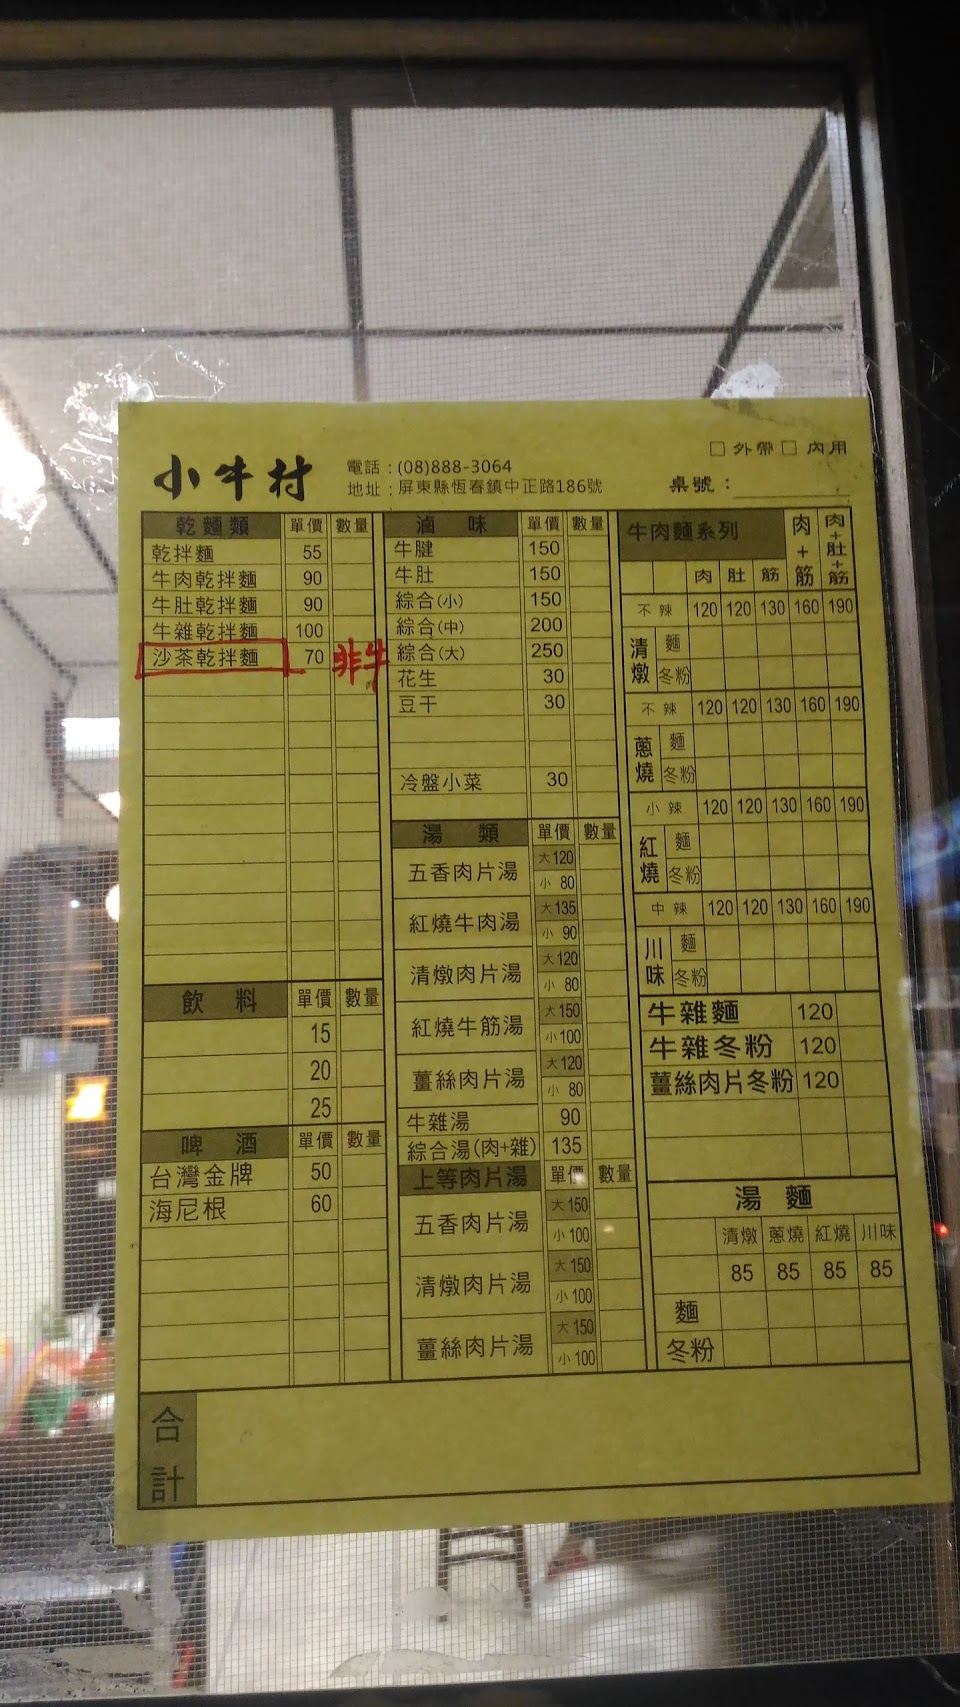 小牛村
電話：(08)888-3064
地址：屏東縣恆春鎮中正路186號
□ 外帶 □ 內用
桌號：
乾麵類 單價 數量
乾拌麵 55
牛肉乾拌麵 90
牛肚乾拌麵 90
牛雜乾拌麵 100
沙茶乾拌麵 70 非牛
飲 料 單價 數量
15
20
25
啤 酒 單價 數量
台灣金牌 50
海尼根 60
滷 味 單價 數量
牛腱 150
牛肚 150
綜合(小) 150
綜合(中) 200
綜合(大) 250
花生 30
豆干 30
冷盤小菜 30
湯 類 單價 數量
五香肉片湯 大120
小 80
紅燒牛肉湯 大135
小 90
清燉肉片湯 大120
小 80
紅燒牛筋湯 大150
小100
薑絲肉片湯 大120
小 80
牛雜湯 90
綜合湯(肉+雜) 135
上等肉片湯 單價 數量
五香肉片湯 大150
小100
清燉肉片湯 大150
小100
薑絲肉片湯 大150
小100
牛肉麵系列
肉 肚 筋 肉+筋 肉+肚+筋
不辣 120 120 130 160 190
清燉 麵
冬粉
不辣 120 120 130 160 190
蔥燒 麵
冬粉
小辣 120 120 130 160 190
紅燒 麵
冬粉
中辣 120 120 130 160 190
川味 麵
冬粉
牛雜麵 120
牛雜冬粉 120
薑絲肉片冬粉 120
湯 麵
清燉 蔥燒 紅燒 川味
85 85 85 85
麵
冬粉
合計